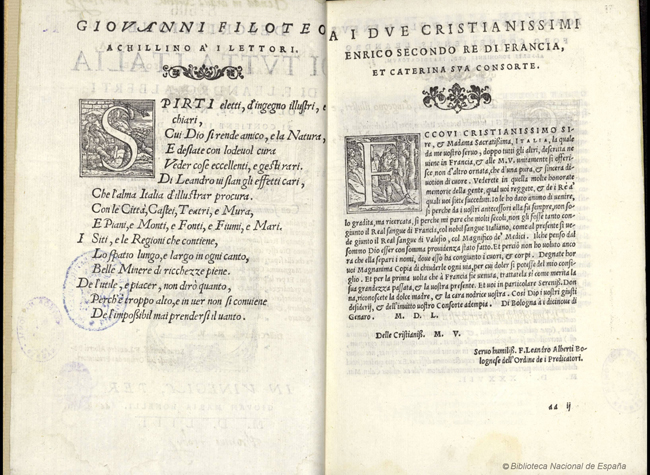 GIOVANNI FILOTEO
ACHILLINO A' I LETTORI.
SPIRTI eletti, d'ingegno illustri, e
chiari,
Cui Dio si rende amico, e la Natura,
E destate con lodevol cura
Veder cose eccellenti, e gesti rari.
Di Leandro ui sian gli effetti cari,
Che l'alma Italia d'illustrar procura.
Con le Città, Castei, Teatri, e Mura,
E Piani, e Monti, e Fonti, e Fiumi, e Mari.
I Siti, e le Regioni che contiene,
Lo spatio lungo, e largo in ogni canto,
Belle Minere di ricchezze piene.
De l'utile, e piacer, non dirò quanto,
Perch'è troppo alto, e in uer non si conuiene
De l'impoßibil mai prendersi il uanto.
A I DVE CRISTIANISSIMI
ENRICO SECONDO RE DI FRANCIA,
ET CATERINA SVA CONSORTE.
ECCOVI CRISTIANISSIMO SI-
RE, & Madama Sacratissima, ITALIA, la quale
da me uostro seruo, doppo tutti gli altri, descritta ne
uiene in Francia, & alle M. V. unitamente si offeri-
sce non d'altro ornata, che d'una pura, & sincera di-
uotion di cuore. Vederete in quella molte honorate
memorie della gente, qual uoi reggete, & de i Re à
quali uoi sete succeduti. Io le ho dato animo di uenire,
si perche da i uostri antecessori ella fu sempre, non so-
lo gradita, ma ricercata, si perche mi pare che molti secoli, non gli fosse tanto con-
giunto il Real sangue di Francia, col nobil sangue Italiano, come al presente si ue-
de giunto il Real sangue di Valesio, col Magnifico de' Medici. Il che penso dal
sommo Dio esser con somma prouidenza stato fatto. Et perciò non ho uoluto anco
ra che ella separi i nomi, doue esso ha congiunto i cuori, & corpi. Degnate hor
uoi Magnanima Copia di chiuderle ogni uia, per cui doler si potesse del mio consi-
glio. Et per la prima uolta che à Francia sie uenuta, trattarla sì come merita la
sua grandezza passata, & la uostra presente. Et uoi in particolare Sereniss. Don-
na, riconoscete la dolce madre, & la cara nodrice uostra. Così Dio i uostri giusti
desiderij, & dell'inuitto uostro Consorte adempia. Di Bologna à i dicinoue di
Genaro. M. D. L.
Delle Cristianiß. M. V.
Seruo humiliß. F. Leandro Alberti Bo-
lognese dell'Ordine de i Predicatori.
aa ij
© Biblioteca Nacional de España